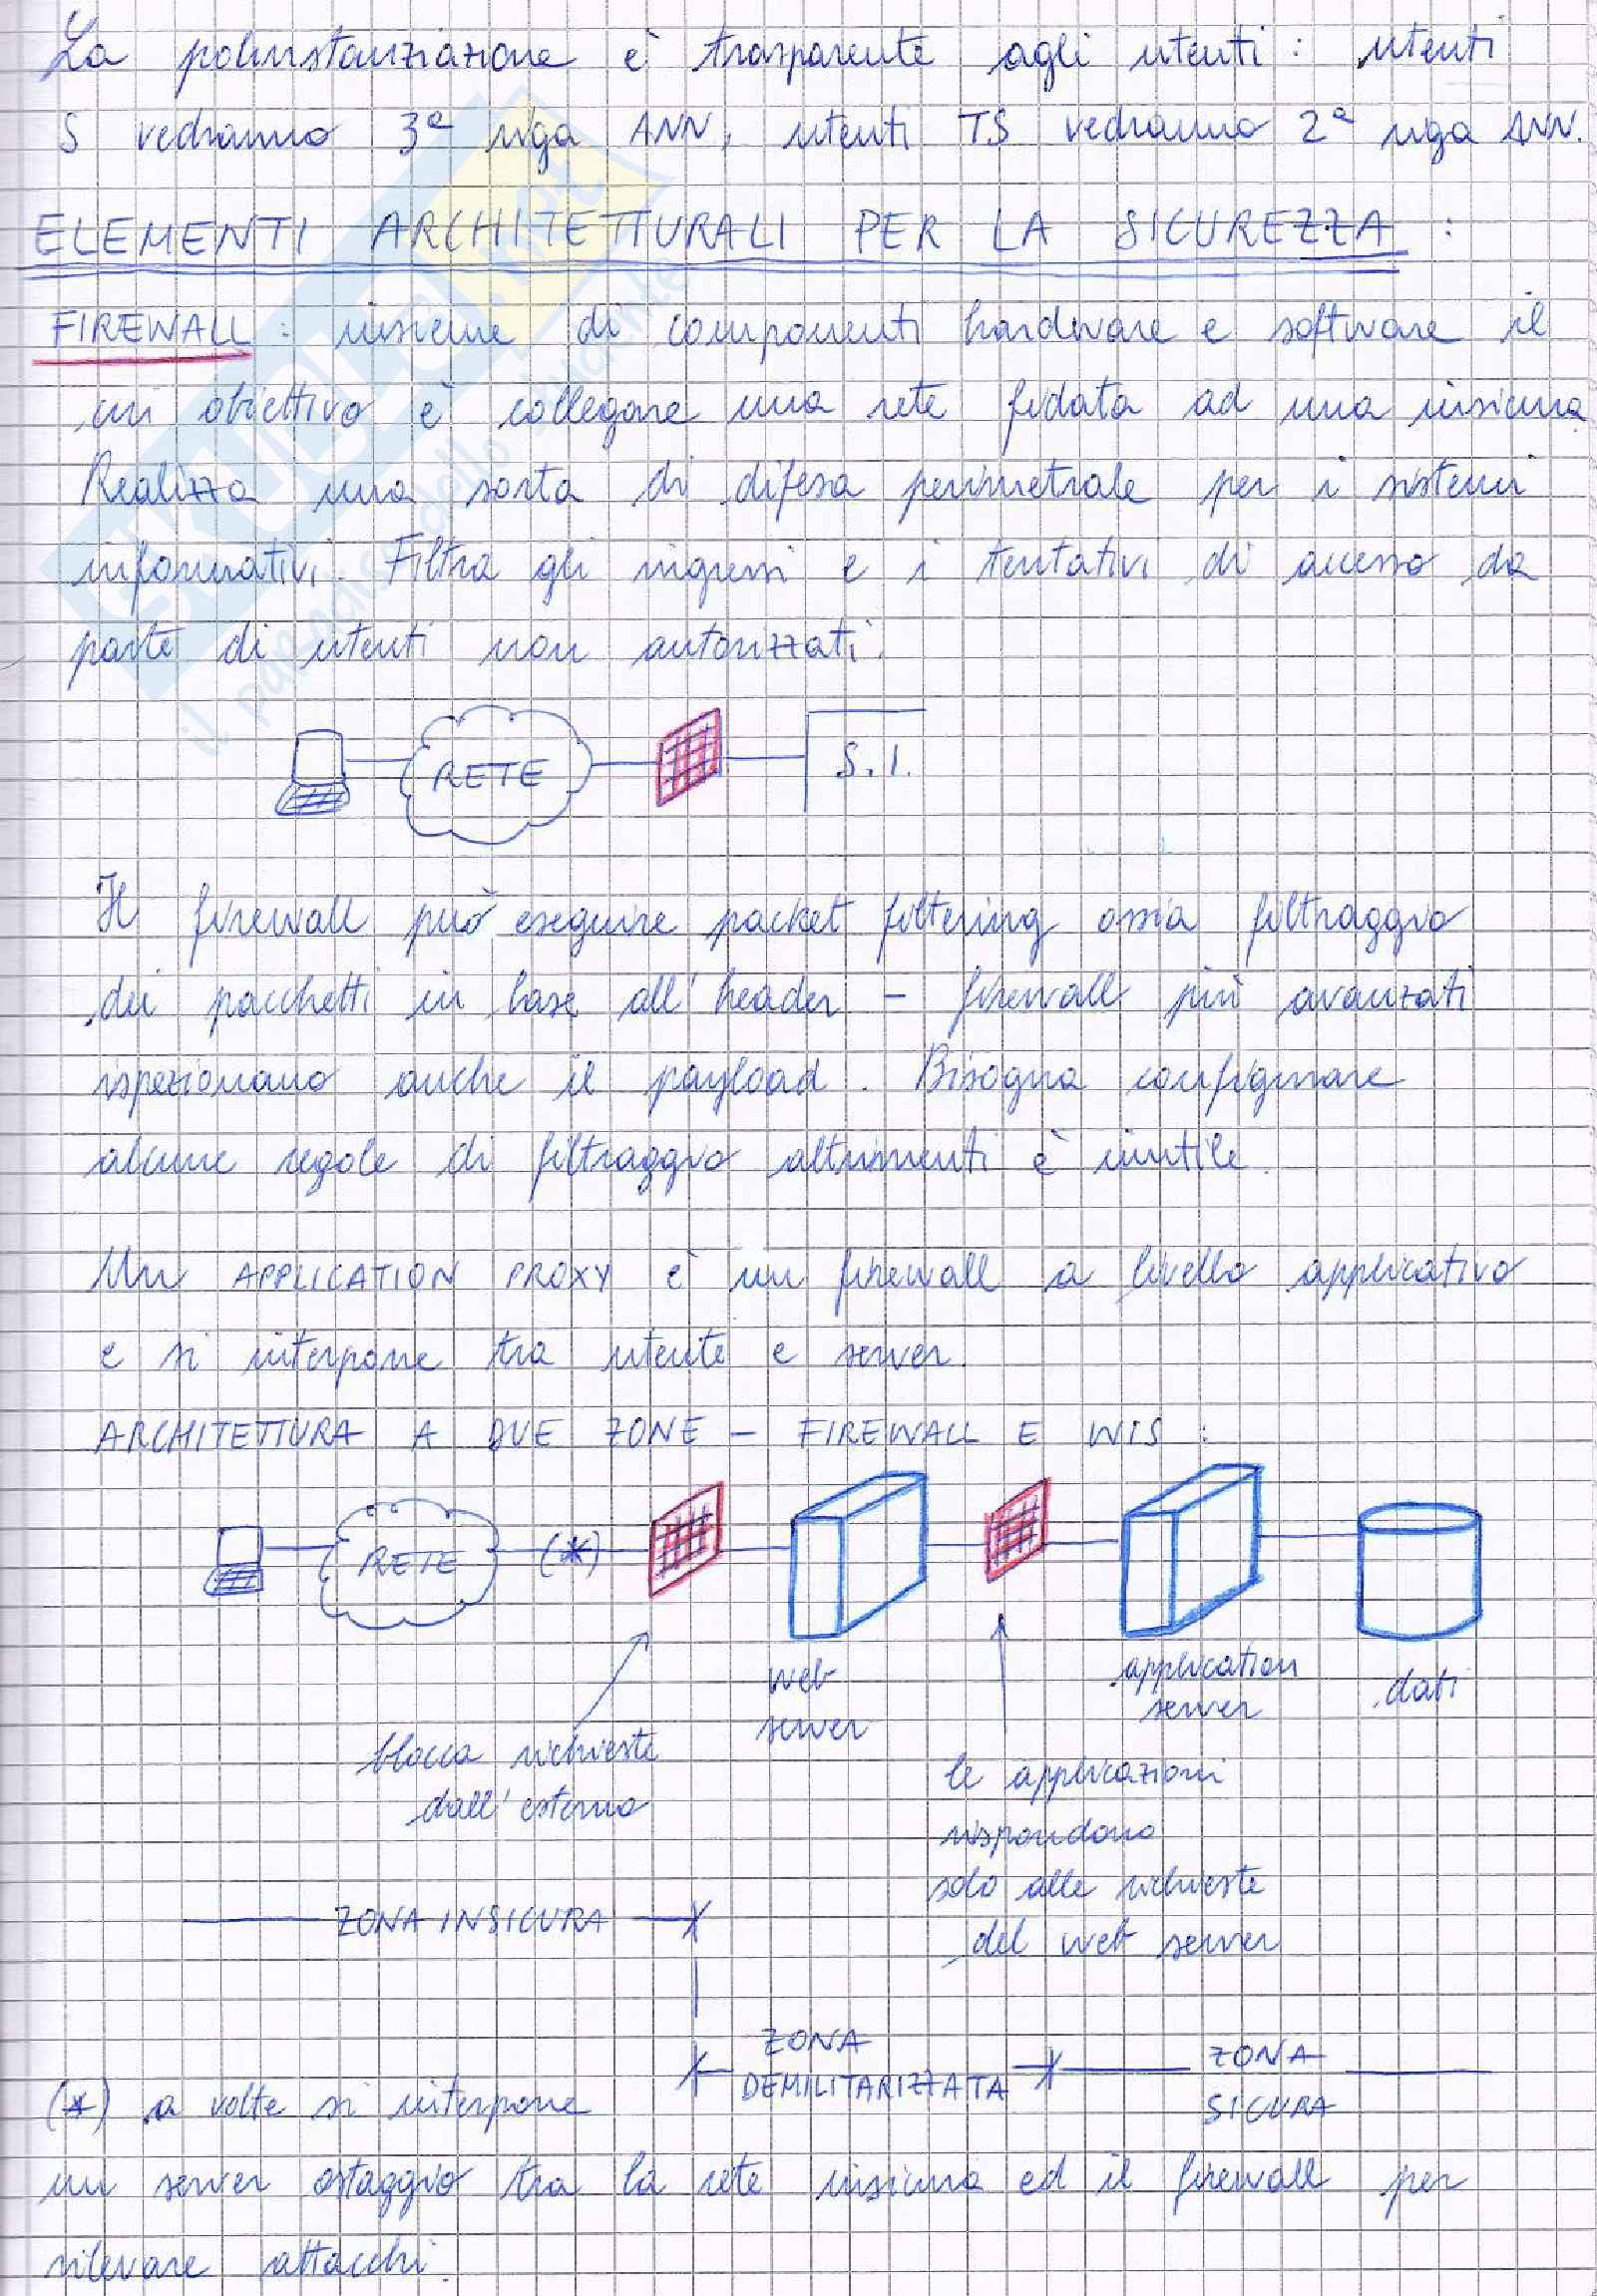 La polinstanziazione è trasparente agli utenti: utenti
S vedranno 3ª riga ANN, utenti TS vedranno 2ª riga ANN.
ELEMENTI ARCHITETTURALI PER LA SICUREZZA:
FIREWALL: insieme di componenti hardware e software il
cui obiettivo è collegare una rete fidata ad una insicura.
Realizza una sorta di difesa perimetrale per i sistemi
informativi. Filtra gli ingressi e i tentativi di accesso da
parte di utenti non autorizzati.
RETE
S.I.
Il firewall può eseguire packet filtering ossia filtraggio
dei pacchetti in base all'header - firewall più avanzati
ispezionano anche il payload. Bisogna configurare
alcune regole di filtraggio altrimenti è inutile.
Un APPLICATION PROXY è un firewall a livello applicativo
e si interpone tra utente e server.
ARCHITETTURA A DUE ZONE - FIREWALL E WIS:
RETE (*)
web
server
application
server
dati
blocca richieste
dall'esterno
le applicazioni
rispondono
solo alle richieste
del web server
ZONA INSICURA
ZONA
DEMILITARIZZATA
ZONA
SICURA
(*) a volte si interpone
un server ostaggio tra la rete insicura ed il firewall per
rilevare attacchi.